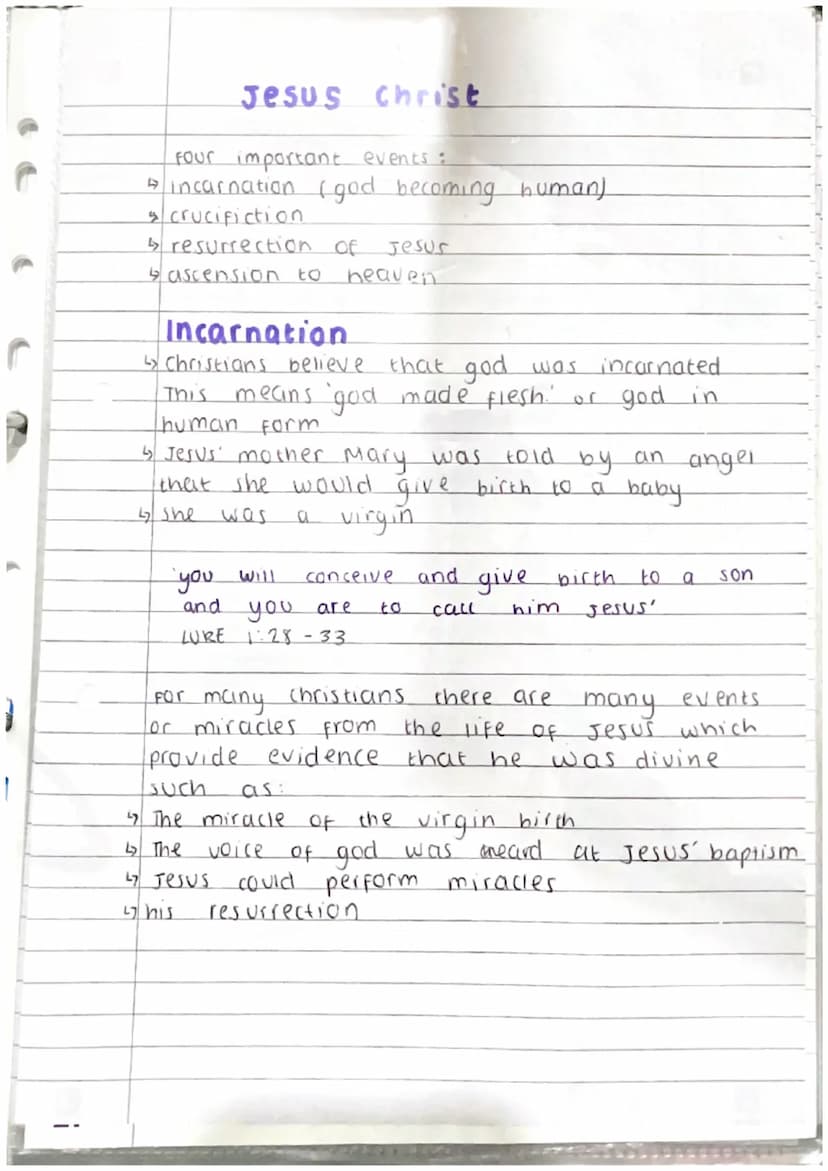 Jesus Christ
Four important events:
↳ incarnation (god becoming human)
↳ crucifiction
↳ resurrection of Jesus
↳ ascension to heaven
Incarnation
↳ Christians believe that god was incarnated
This means 'god made flesh' or god in
human form
↳ Jesus' mother Mary was told by an angel
that she would give birth to a baby
↳ she was a virgin
'you will conceive and give birth to a son
and you are to call him Jesus'
LUKE 1:28-33
For many Christians there are many events
or miracles from the life of Jesus which
provide evidence that he was divine
such as:
↳ The miracle of the virgin birth
↳ The voice of god was heard at Jesus' baptism
↳ Jesus could perform miracles
↳ his resurrection